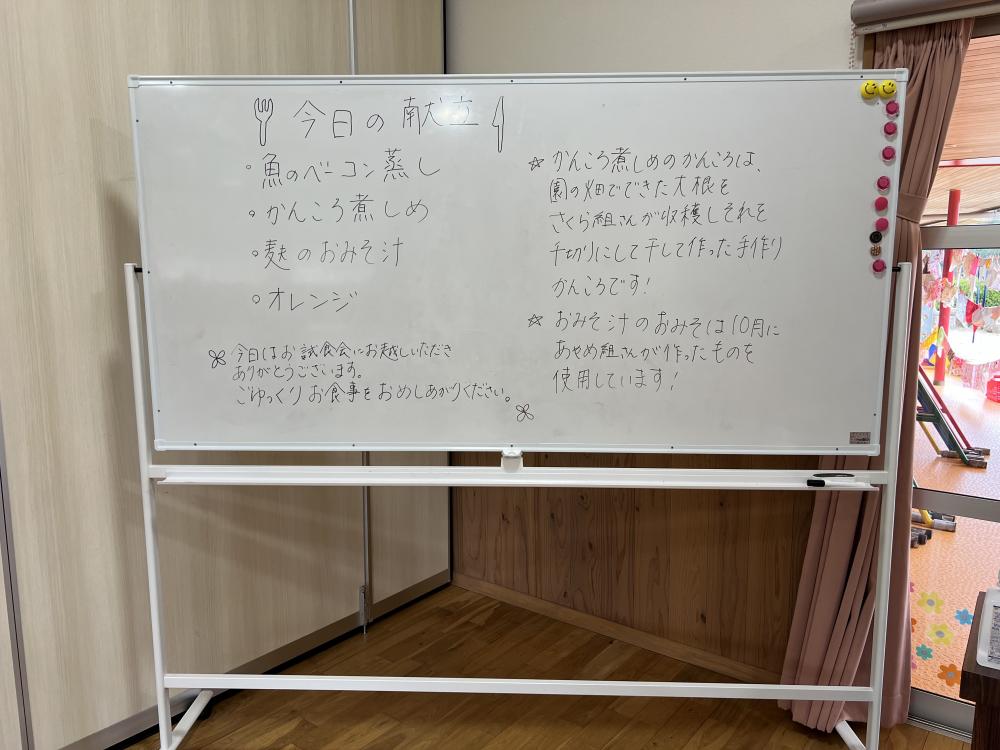 今日の献立
・魚のベーコン蒸し
。かんころ煮しめ
。麩のおみそ汁
。オレンジ
今日はお試食会にお越しいただき
ありがとうございます。
ごゆっくりお食事をおめしあがりください。
☆ かんころ煮しめのかんころは、
園の畑でできた大根を
さくら組さんが収穫しそれを
千切りにして干して作った手作り
かんころです!
☆ おみそ汁のおみそは10月に
あやめ組さんが作ったものを
使用しています!